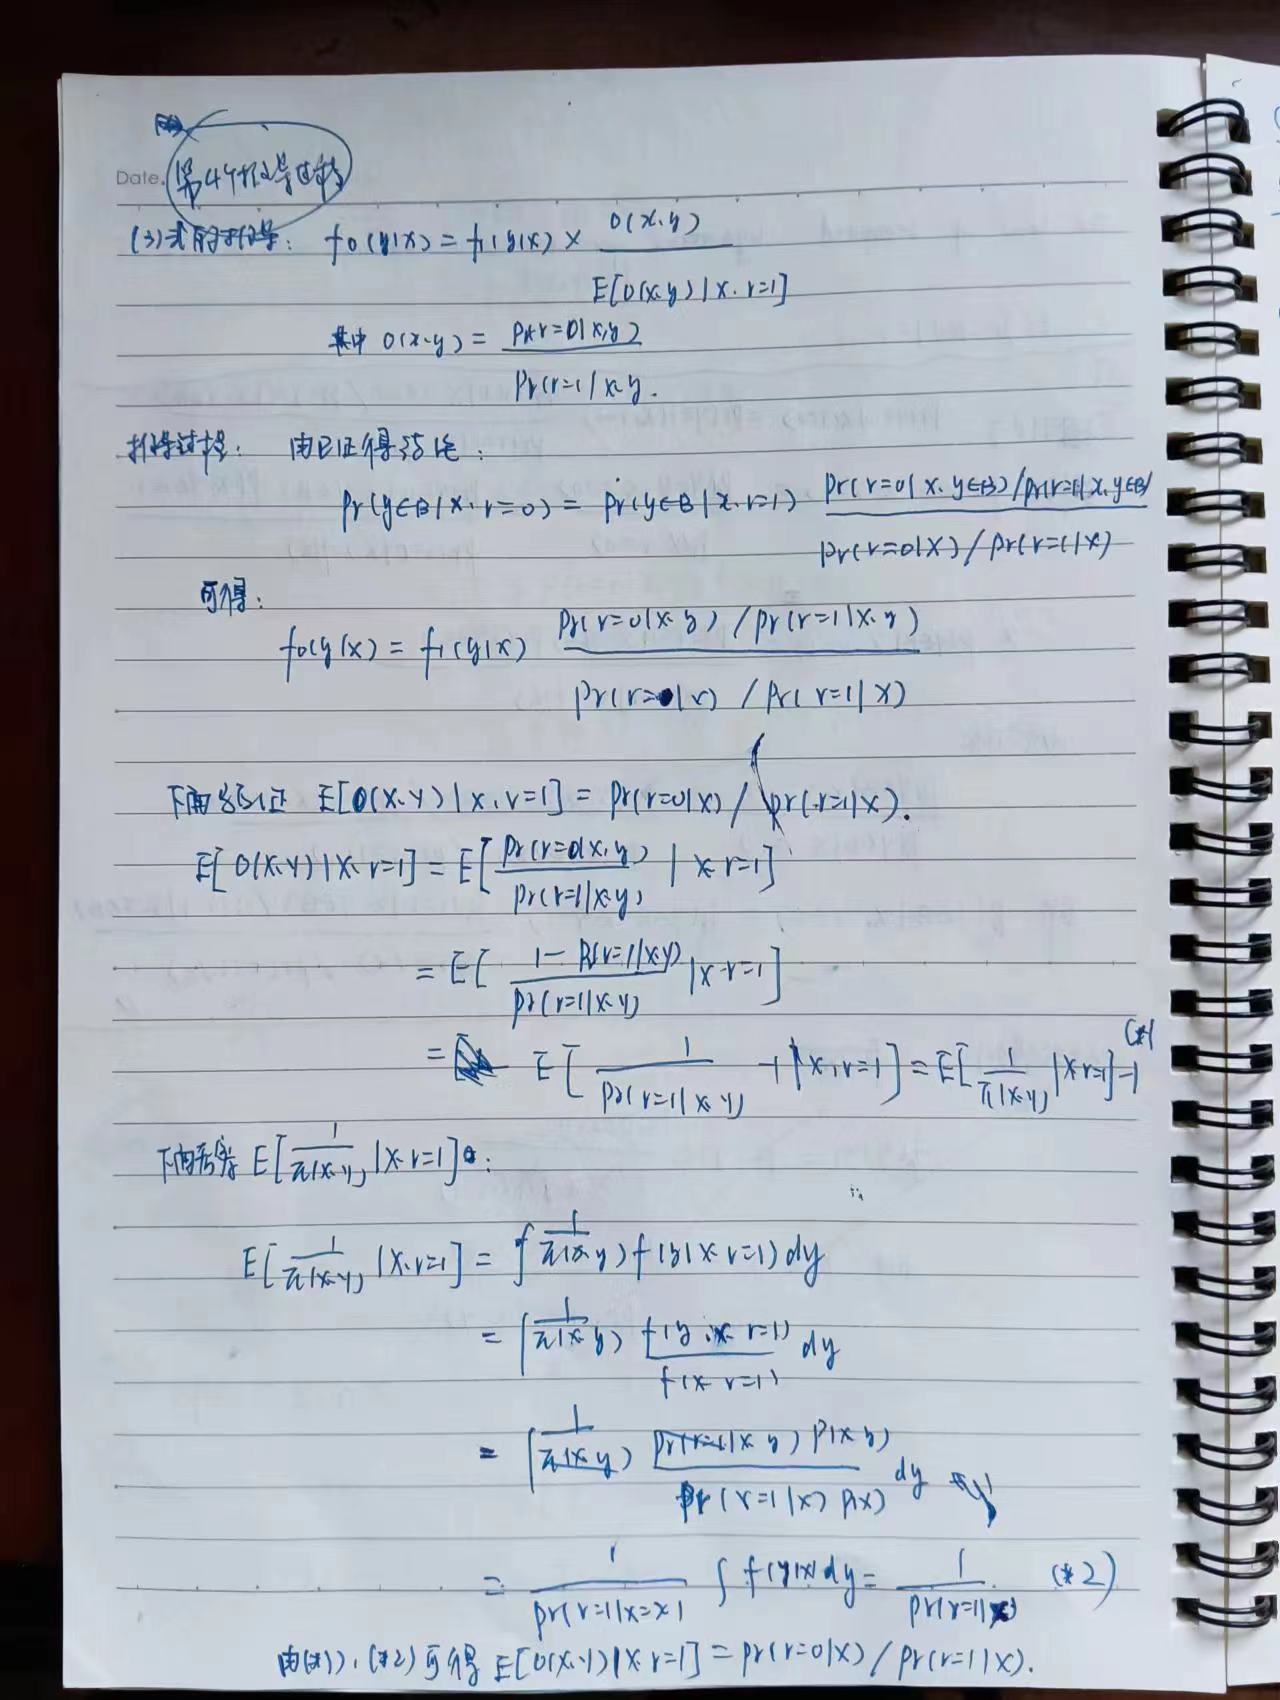 Date.
第4个推导过程
(3)式的推导: f₀(y|x) = f₁(y|x) × O(x,y) / E[O(x,y)|x,r=1]
其中 O(x,y) = Pr(r=0|x,y) / Pr(r=1|x,y.
推导过程: 由已证得结论:
Pr(y∈B|x,r=0) = Pr(y∈B|x,r=1) Pr(r=0|x,y∈B)/Pr(r=1|x,y∈B) / Pr(r=0|x)/Pr(r=1|x)
可得:
f₀(y|x) = f₁(y|x) Pr(r=0|x,y)/Pr(r=1|x,y) / Pr(r=0|x)/Pr(r=1|x)
下面验证 E[O(x,y)|x,r=1] = Pr(r=0|x)/Pr(r=1|x).
E[O(x,y)|x,r=1] = E[Pr(r=0|x,y) / Pr(r=1|x,y) | x,r=1]
= E[1-Pr(r=1|x,y) / Pr(r=1|x,y) | x,r=1]
= E[1 / Pr(r=1|x,y) - 1|x,r=1] = E[1 / π(x,y) |x,r=1]-1 (*1)
下面考察 E[1 / π(x,y) |x,r=1]:
E[1 / π(x,y) |x,r=1] = ∫ 1 / π(x,y) f(y|x,r=1)dy
= ∫ 1 / π(x,y) f(y,x,r=1) / f(x,r=1) dy
= ∫ 1 / π(x,y) Pr(r=1|x,y)P(x,y) / Pr(r=1|x)P(x) dy
= 1 / Pr(r=1|x=x) ∫ f(y|x)dy = 1 / Pr(r=1|x) (*2)
由(*1),(*2)可得 E[O(x,y)|x,r=1] = Pr(r=0|x)/Pr(r=1|x).